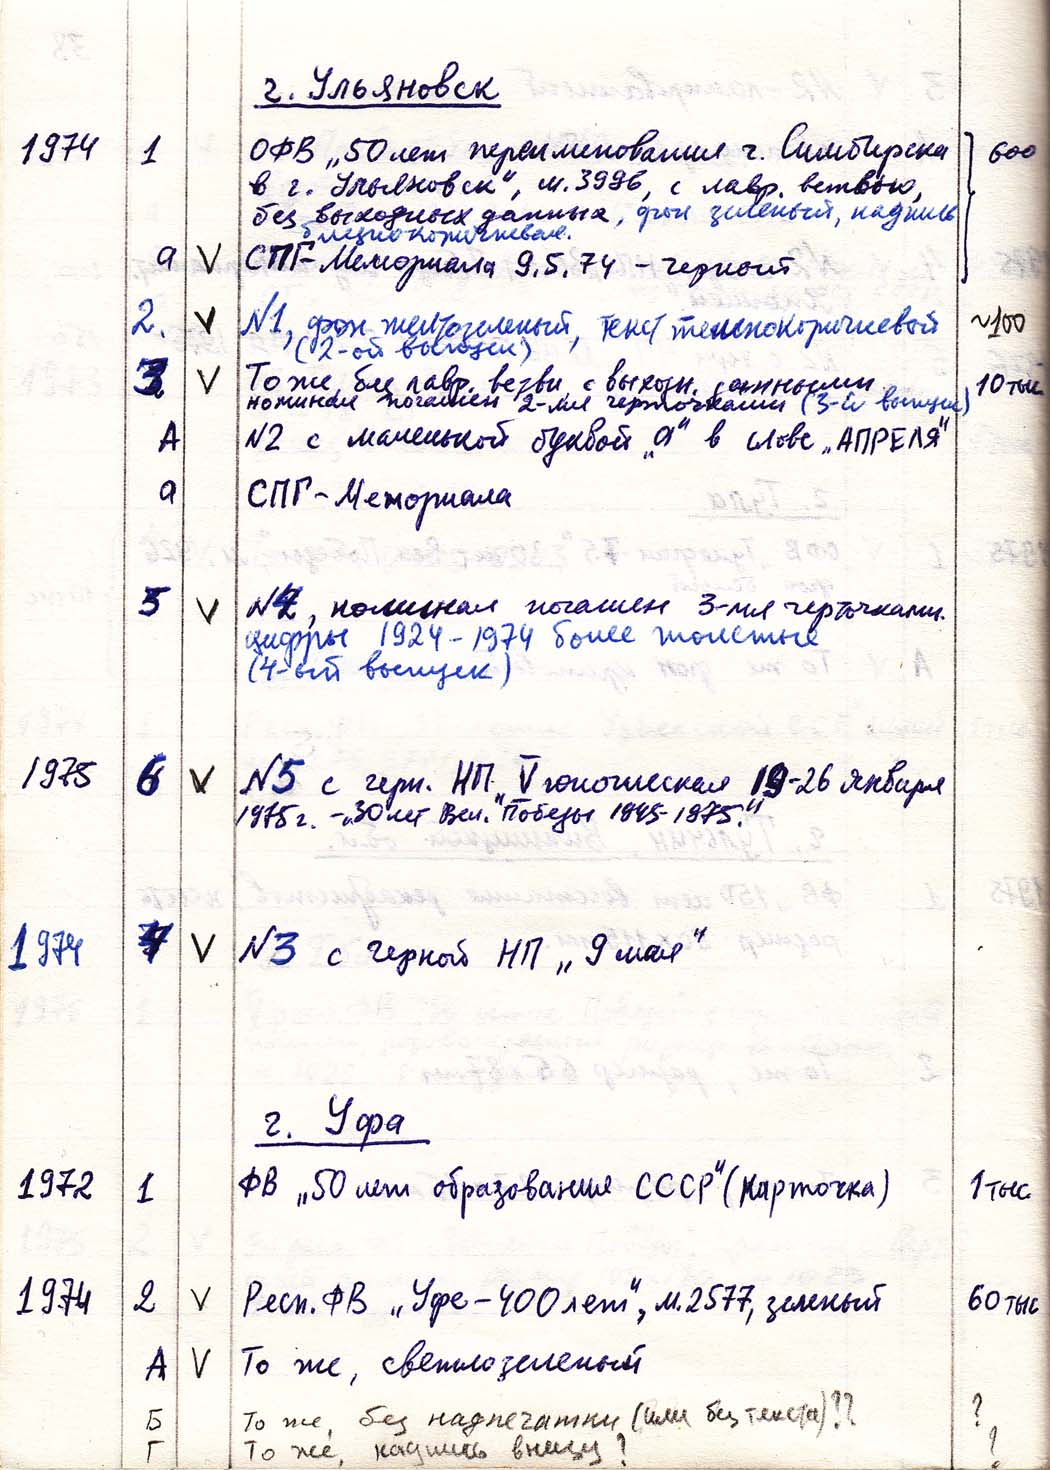 г. Ульяновск
1974 1 ОФВ „50 лет переименования г. Симбирска 600
в г. Ульяновск", м.3996, с лавр. ветвью,
без выходных данных, фон зеленый, надпись
бледнокоричневая.
а V СПГ-Мемориала 9.5.74 - черный
2. V N1, фон желтозеленый, текст темнокоричневой ~100
(2-ой выпуск)
3 V То же, без лавр. ветви с выходн. данными 10 тыс
номинал погашен 2-мя черточками (3-й выпуск)
А N2 с маленькой буквой „я" в слове „АПРЕЛЯ"
а СПГ-Мемориала
5 V N2, номинал погашен 3-мя черточками.
цифры 1924-1974 более толстые
(4-ый выпуск)
1975 6 V N5 с черн. НП „V юношеская 19-26 января
1975 г. - „30 лет Вел. Победы 1945-1975."
1974 7 V N3 с черной НП „9 мая"
г. Уфа
1972 1 ФВ „50 лет образования СССР" (карточка) 1 тыс.
1974 2 V Респ. ФВ „Уфе-400 лет", м.2577, зеленый 60 тыс
А V То же, светлозеленый
Б То же, без надпечатки (или без текста)?? ?
Г То же, надпись внизу? ?